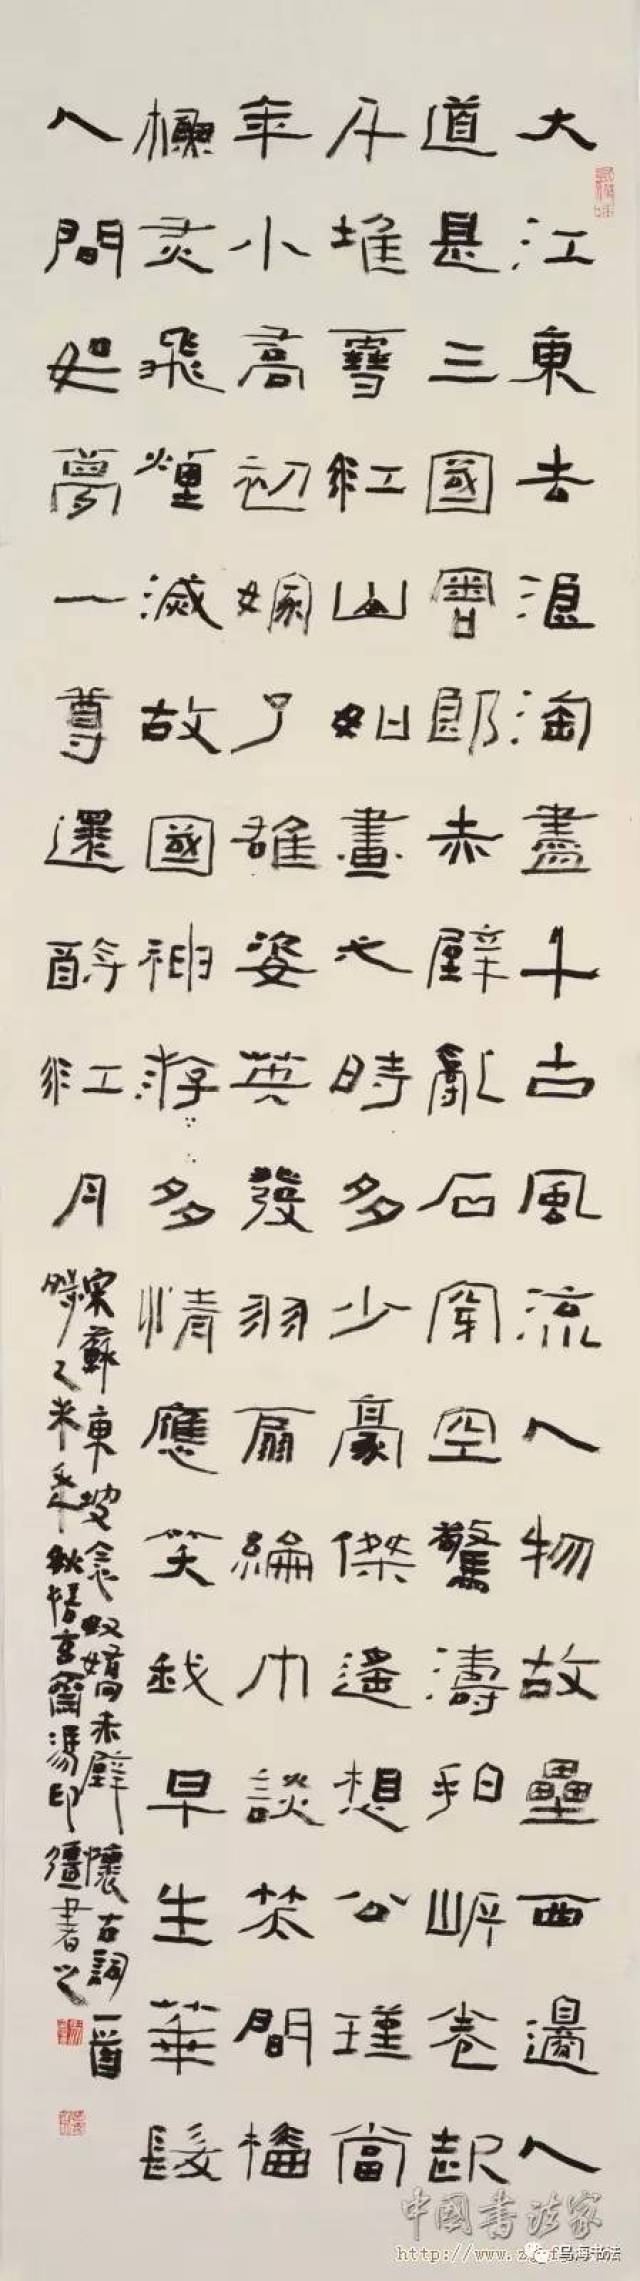 大江東去浪淘盡千古風流人物故壘西邊人
道是三國周郎赤壁亂石穿空驚濤拍岸卷起
千堆雪江山如畫一時多少豪傑遙想公瑾當
年小喬初嫁了雄姿英發羽扇綸巾談笑間檣
櫓灰飛煙滅故國神游多情應笑我早生華髮
人間如夢一尊還酹江月
宋蘇東坡念奴嬌赤壁懷古詞一首
時乙未年秋悟玄齋馮印彊書之
中國書法家
乌海书法